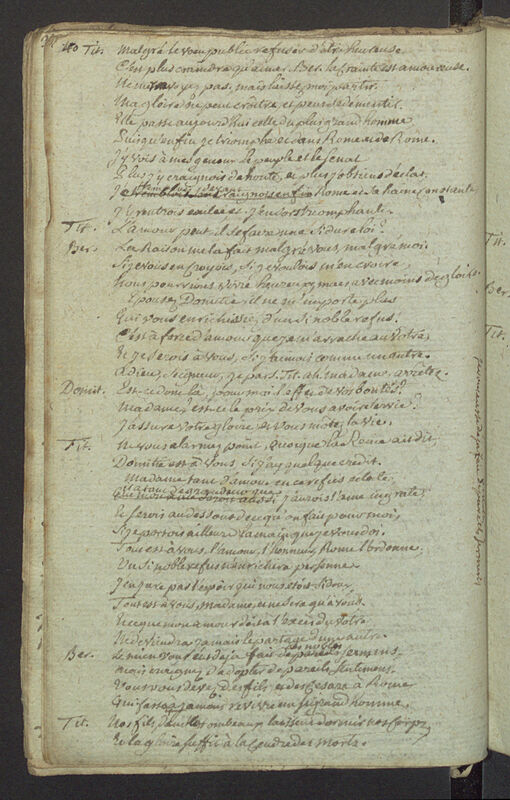 40 Tit. Malgré le voeu public refuser d'être heureuse
C'est plus craindre qu'aimer. Ber. La crainte est amoureuse.
Ne me renvoyez pas, mais laissez moi partir.
Ma gloire ne peut croitre, et peut se démentir.
Elle passe aujourd'hui celle du plus grand homme
Puisqu'enfin je triomphe et dans Rome et de Rome.
J'y vois à mes genoux le peuple et le senat
Plus j'y craignois de honte, et plus j'obtiens d'éclat.
J'y tremblois sous sa haine
craignois enfin Rome et sa haine constante
J'y rentrois exilée et j'en sors triomphante.
Tit. L'amour peut-il se faire une si dure loi?
Ber. La Raison me la fait malgré vous, malgré moi.
Si je vous en croyois, si je voulois m'en croire,
Nous pourrions vivre heureux, mais avec moins de gloire.
Epousez Domitie: il ne m'importe plus
Qui vous enrichissiez d'un si noble refus.
C'est à force d'amour que je m'arrache au votre
Et je serois à vous, si j'aimois comme une autre.
Adieu Seigneur, je pars. Tit. ah madame, arrêtez.
Domit. Est-ce donc là, pour moi l'effet de vos bontés?
Madame, est-ce le prix de vous avoir servie?
J'assure votre gloire, et vous m'otez la vie.
Tit. Ne vous alarmez point, quoi que la Reine ait dit,
Domitie est à vous, si j'ay quelque credit.
Madame, tant d'amour en ce refus eclate,
que j'aurois l'ame ingrate,
Et serois au dessous de ce qu'on fait pour moi,
Si je portois ailleurs la main que je vous doi.
Tout est à vous. L'amour, l'honneur, Rome l'ordonne.
Un si noble refus n'enrichira personne
J'en jure par l'espoir qui nous etoit si doux
Tout est à vous, madame, et ne sera qu'à vous.
Et ce que mon amour doit à l'excès du votre
Ne deviendra jamais le partage d'une autre.
Ber. Le mien vous eût deja fait de pareils sermens
les mêmes
mais craignez d'adopter de pareils sentimens,
Vous vous devez des fils, et des Cesars à Rome
Qui fassent à jamais revivre un si grand homme.
Tit. Nos fils dans les tombeaux laisseront dormir nos corps
Et la gloire suffit à la cendre des morts.
Tit.
Ber.
Tit.